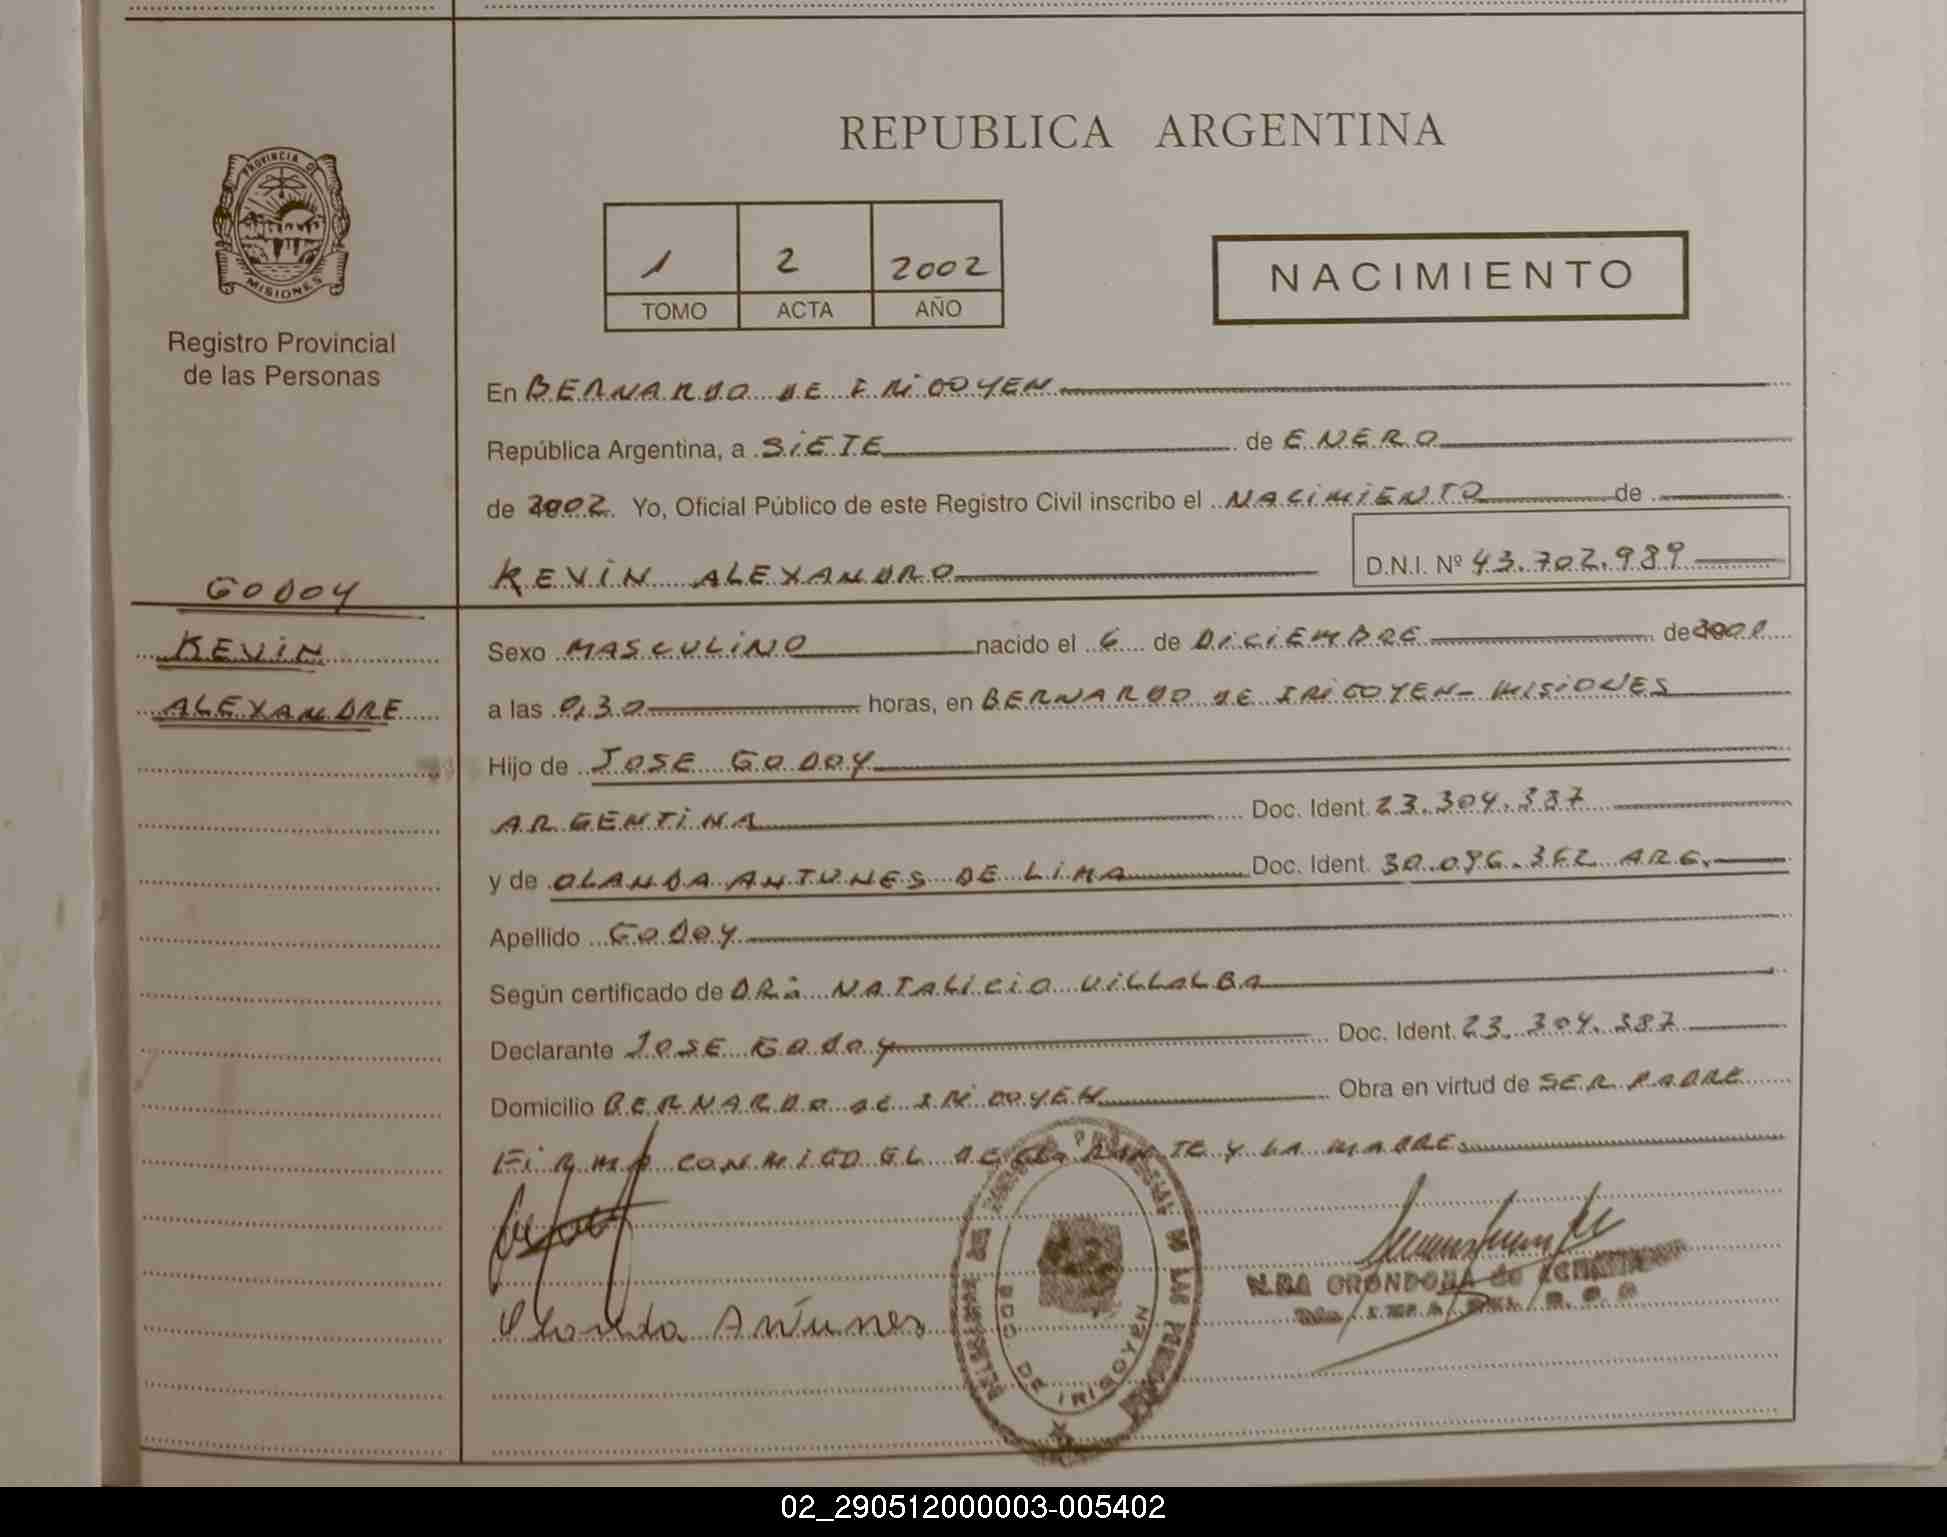 REPUBLICA ARGENTINA
PROVINCIA DE
MISIONES
Registro Provincial
de las Personas
1 2 2002
TOMO ACTA AÑO
NACIMIENTO
En BERNARDO DE IRIGOYEN
República Argentina, a SiETE de ENERO
de 2002. Yo, Oficial Público de este Registro Civil inscribo el NACiMiENTO de
KEVIN ALEXANDRO D.N.I. Nº 43.702.989
GODOY
KEVIN
ALEXANDRE
Sexo MASCULINO nacido el 6 de DiCiEMBRE de
a las 0,30 horas, en BERNARDO DE IRIGOYEN - MISIONES
Hijo de JOSE GODOY
ARGENTINA Doc. Ident. 23.304.387
y de OLANDA ANTUNES DE LIMA Doc. Ident. 30.096.362 ARG.
Apellido GODOY
Según certificado de DRA NATALICIO VILLALBA
Declarante JOSE GODOY Doc. Ident. 23.304.387
Domicilio BERNARDO DE IRIGOYEN Obra en virtud de SER PADRE
FIRMA CONMIGO EL DECLARANTE Y LA MADRE.
Olanda Antunes
BDO. DE IRIGOYEN
02_290512000003-005402